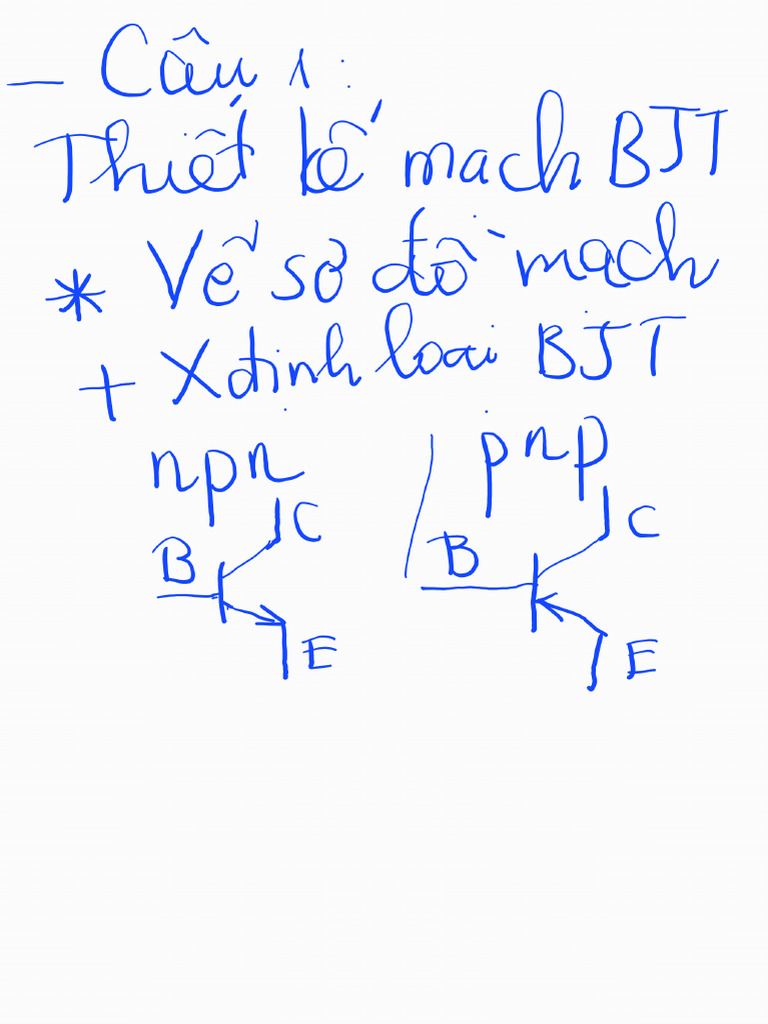 - Câu 1:
Thiết kế mạch BJT
* Vẽ sơ đồ mạch
+ Xđịnh loại BJT
npn / pnp
C C
B B
E E